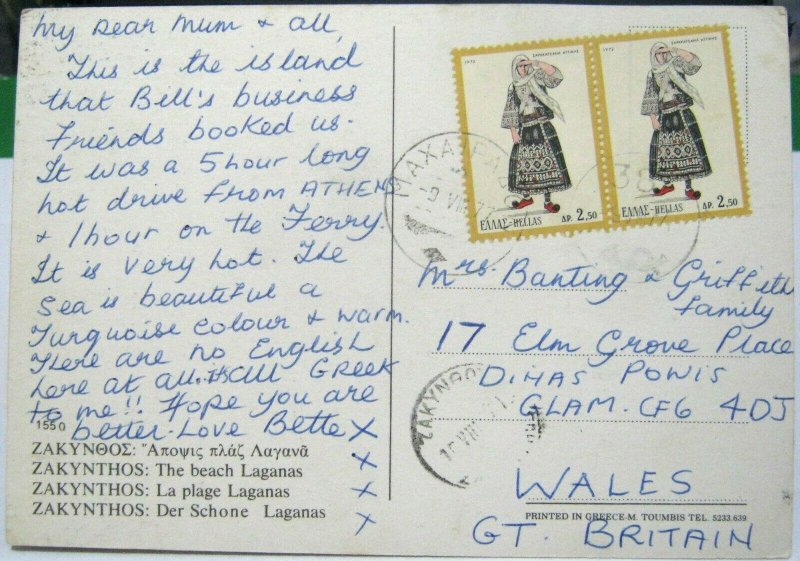 My Dear Mum & all,
This is the island
that Bill's business
Friends booked us.
It was a 5 hour long
hot drive from ATHENS
& 1 hour on the Ferry.
It is very hot. The
Sea is beautiful a
Turquoise colour & warm.
There are no English
here at all. It's all GREEK
to me!! Hope you are
better. Love Bette X
X
X
X
1550
ΖΑΚΥΝΘΟΣ: Ἄποψις πλάζ Λαγανᾶ
ZAKYNTHOS: The beach Laganas
ZAKYNTHOS: La plage Laganas
ZAKYNTHOS: Der Schone Laganas
1972
ΕΛΛΑΣ-HELLAS ΔΡ. 2.50
1972
ΕΛΛΑΣ-HELLAS ΔΡ. 2.50
Mrs. Banting & Griffith
family
17 Elm Grove Place
DINAS POWIS
GLAM. CF6 4DJ
WALES
GT. BRITAIN
ΖΑΚΥΝΘΟ
PRINTED IN GREECE-M. TOUMBIS TEL. 5233.639